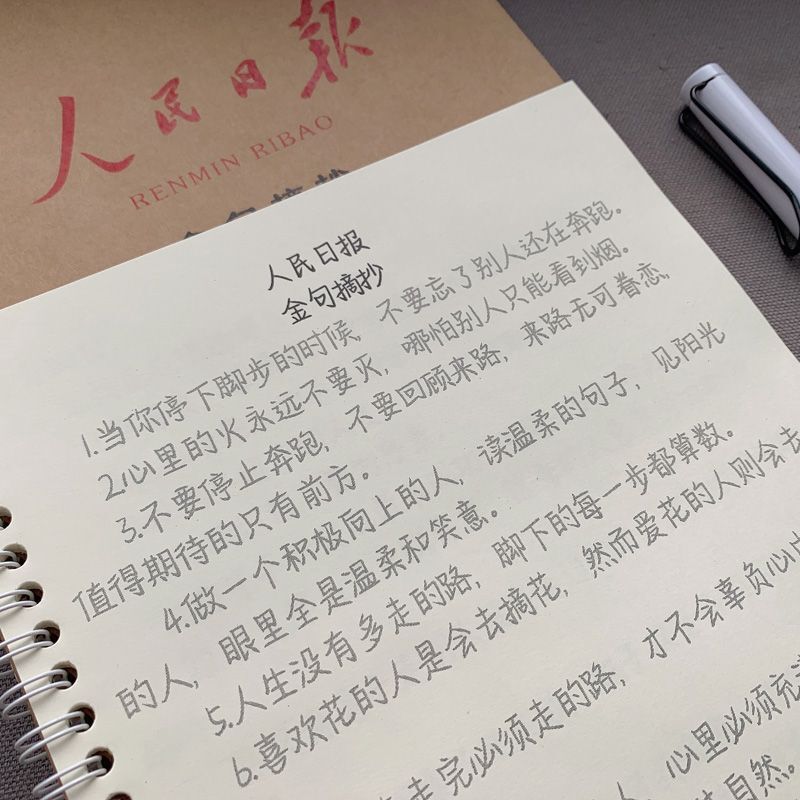 人民日報
RENMIN RIBAO
人民日报
金句摘抄
1.当你停下脚步的时候，不要忘了别人还在奔跑。
2.心里的火永远不要灭，哪怕别人只能看到烟。
3.不要停止奔跑，不要回顾来路，来路无可眷恋，
值得期待的只有前方。
4.做一个积极向上的人，读温柔的句子，见阳光
的人，眼里全是温柔和笑意。
5.人生没有多走的路，脚下的每一步都算数。
6.喜欢花的人是会去摘花，然而爱花的人则会去
走完必须走的路，才不会辜负心中
人，心里必须充
自然。